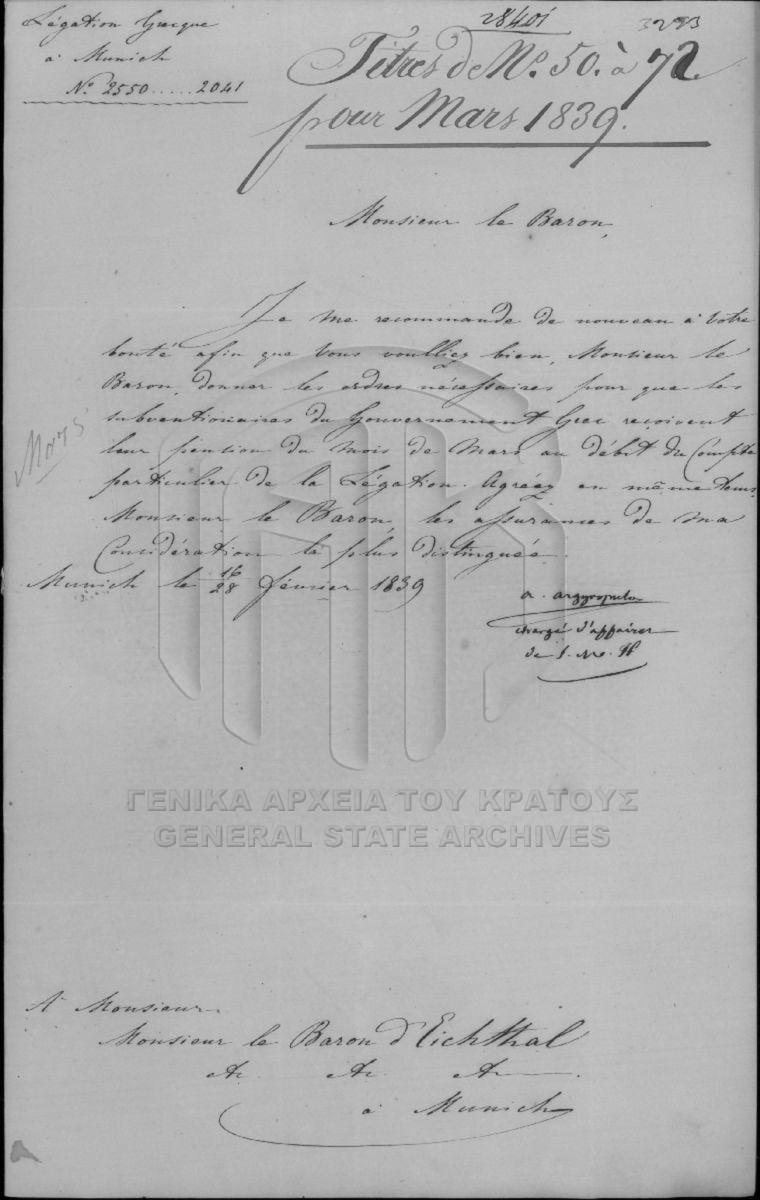 Légation Grecque
à Munich
No 2550.....2041
28401
3293
Titres de No. 50. à 72.
pour Mars 1839.
Monsieur le Baron,
Je me recommande de nouveau à Votre
bonté afin que Vous voulliez bien, Monsieur le
Baron, donner les ordres nécessaires pour que les
subventionaires du Gouvernement Grec reçoivent
leur pension du mois de Mars au débit du Compte
particulier de la Légation. Agréez en même tems
Monsieur le Baron, les assurances de ma
Considération la plus distinguée.
Mars
Munich le 16/28 février 1839
a. argyropulo
chargé d'affaires
de S. M. H
ΓΕΝΙΚΑ ΑΡΧΕΙΑ ΤΟΥ ΚΡΑΤΟΥΣ
GENERAL STATE ARCHIVES
A Monsieur
Monsieur le Baron d'Eichthal
à Munich